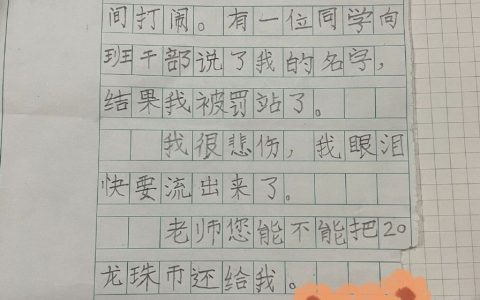 间打闹。有一位同学向
班干部说了我的名字，
结果我被罚站了。
我很悲伤，我眼泪
快要流出来了。
老师您能不能把20
龙珠币还给我。